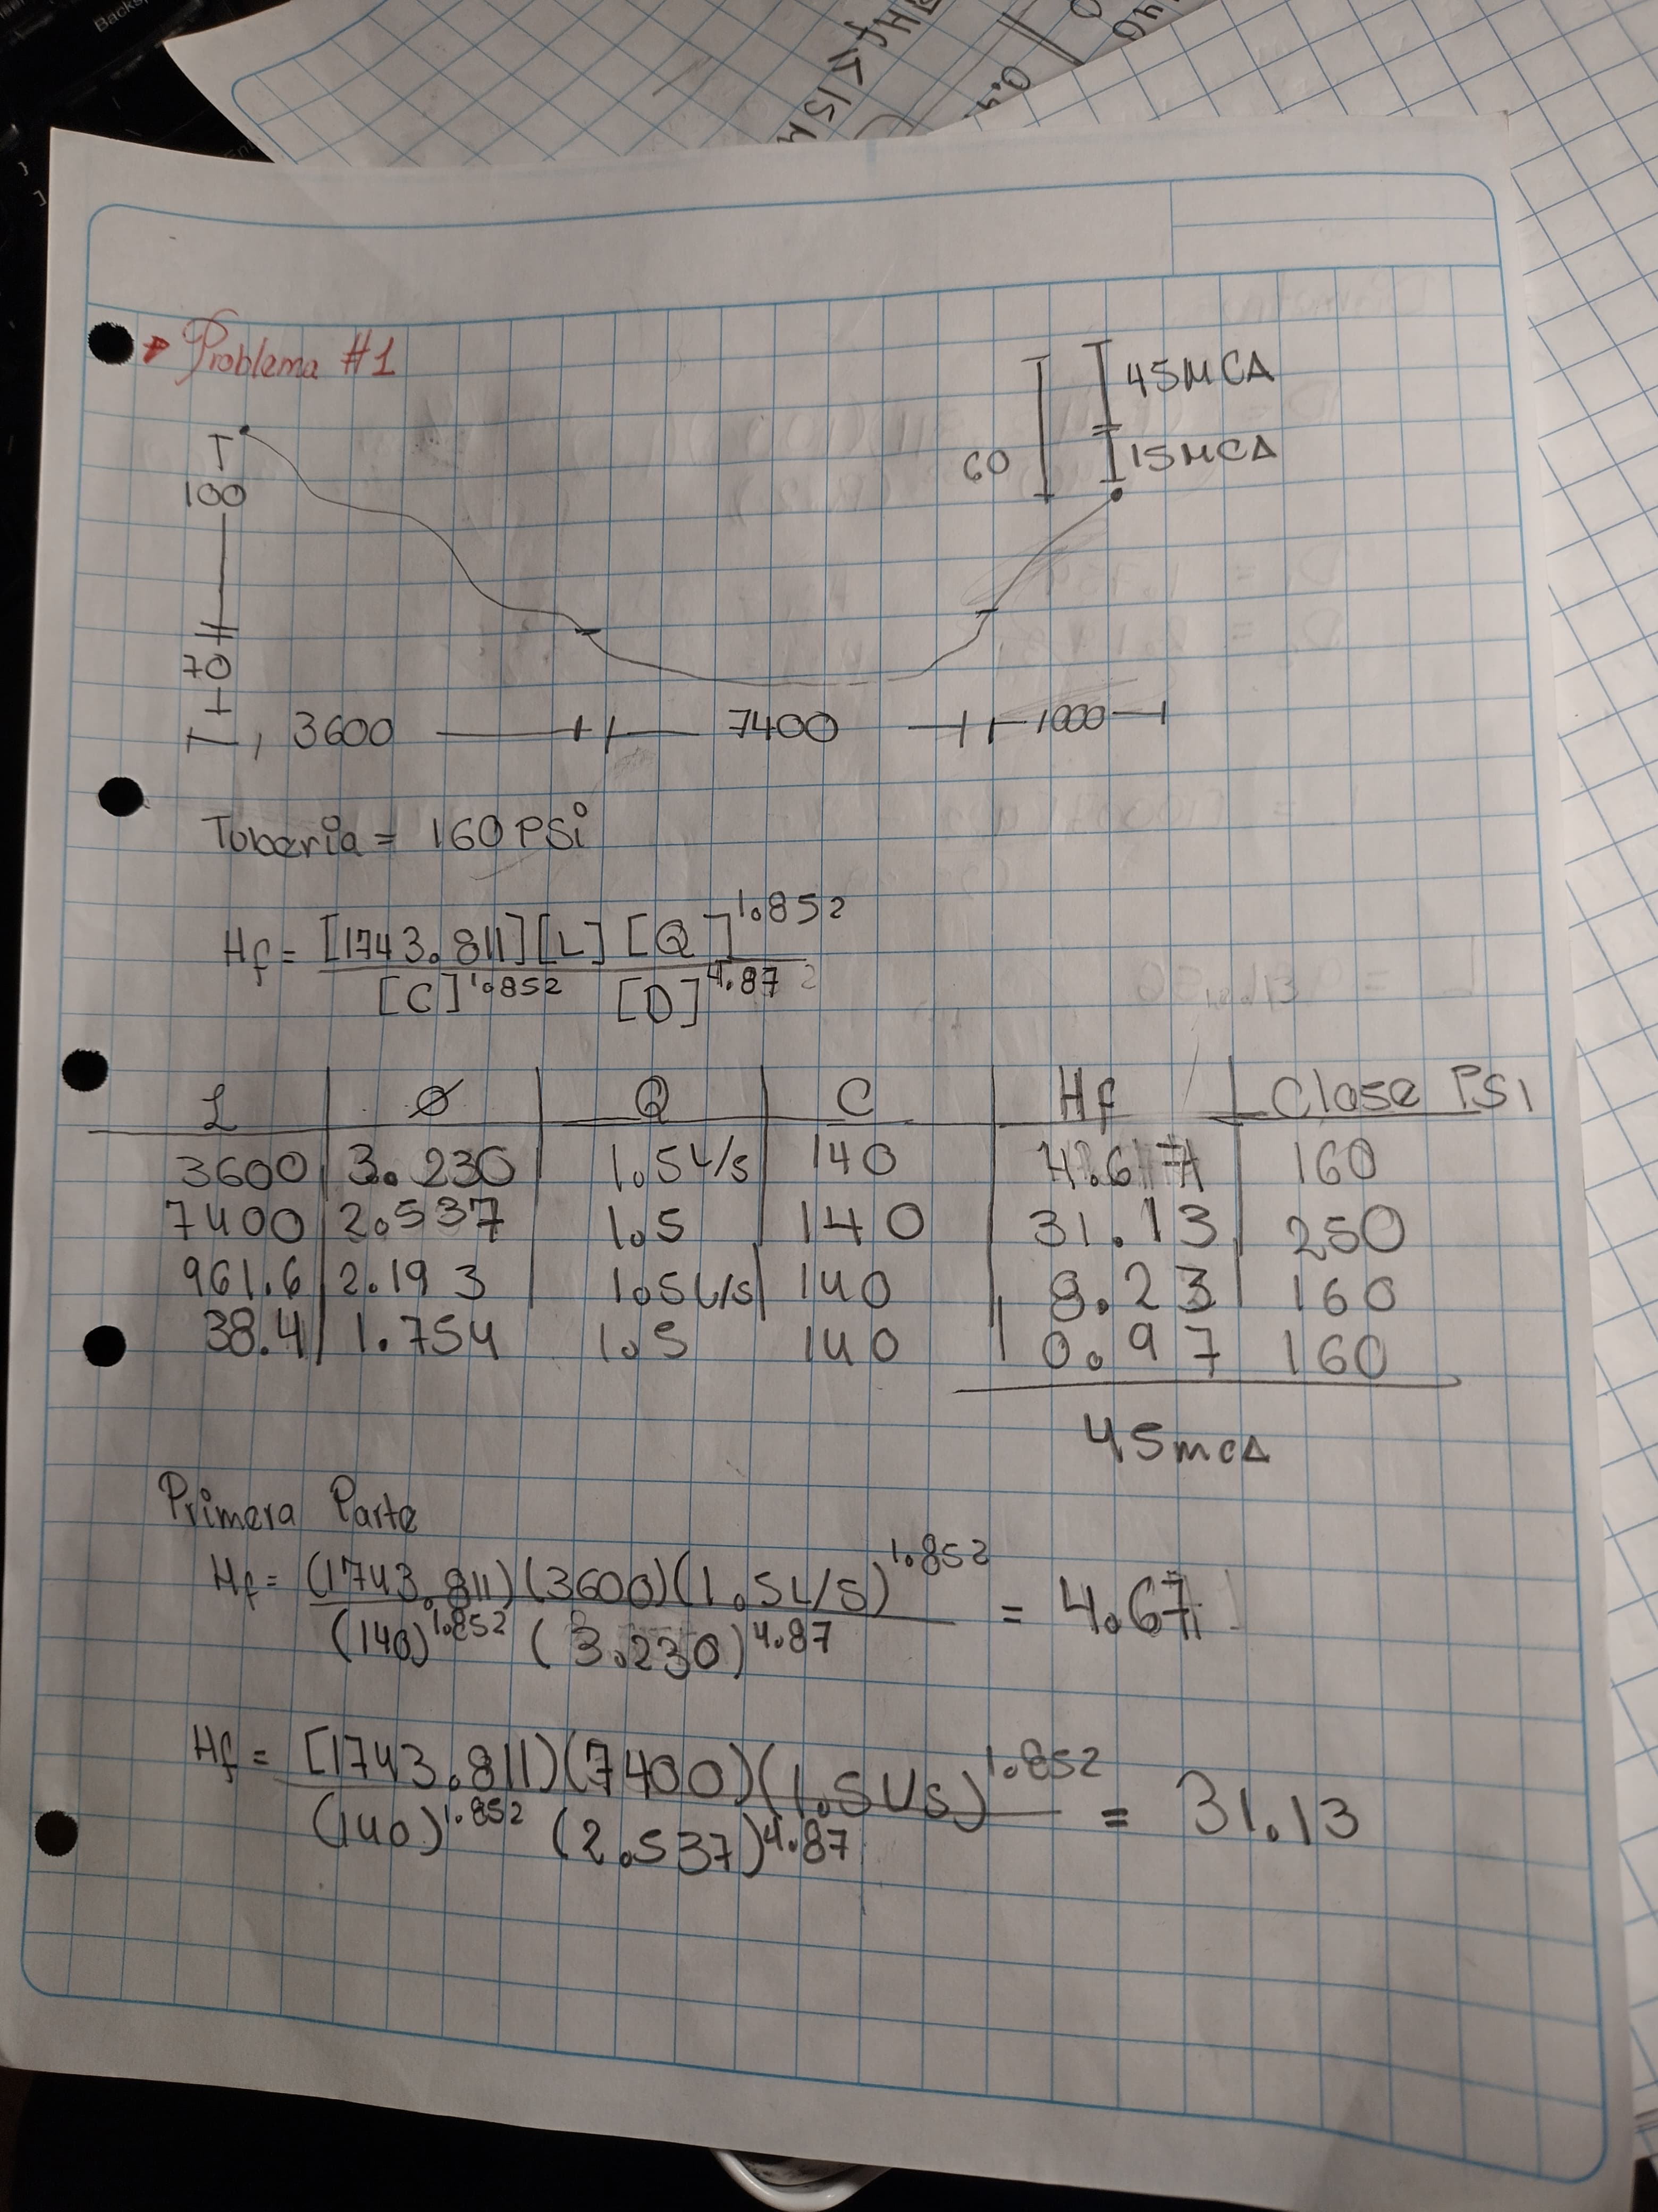 Hf ≤ 15 M
Problema #1
45MCA
60
15MCA
100
70
3600
7400
1000
Tuberia = 160 PSi
Hf = [1743.811][L][Q]^1.852
[C]^1.852 [D]^4.87
L Ø Q C Hf Clase PSI
3600 3.230 1.5L/s 140 4.67 160
7400 2.537 1.5 140 31.13 250
961.6 2.193 1.5L/s 140 8.23 160
38.4 1.754 1.5 140 0.97 160
45mcA
Primera Parte
Hf = (1743.811)(3600)(1.5L/S)^1.852 = 4.67
(140)^1.852 (3.230)^4.87
Hf = [1743.811)(7400)(1.5L/s)^1.852 = 31.13
(140)^1.852 (2.537)^4.87